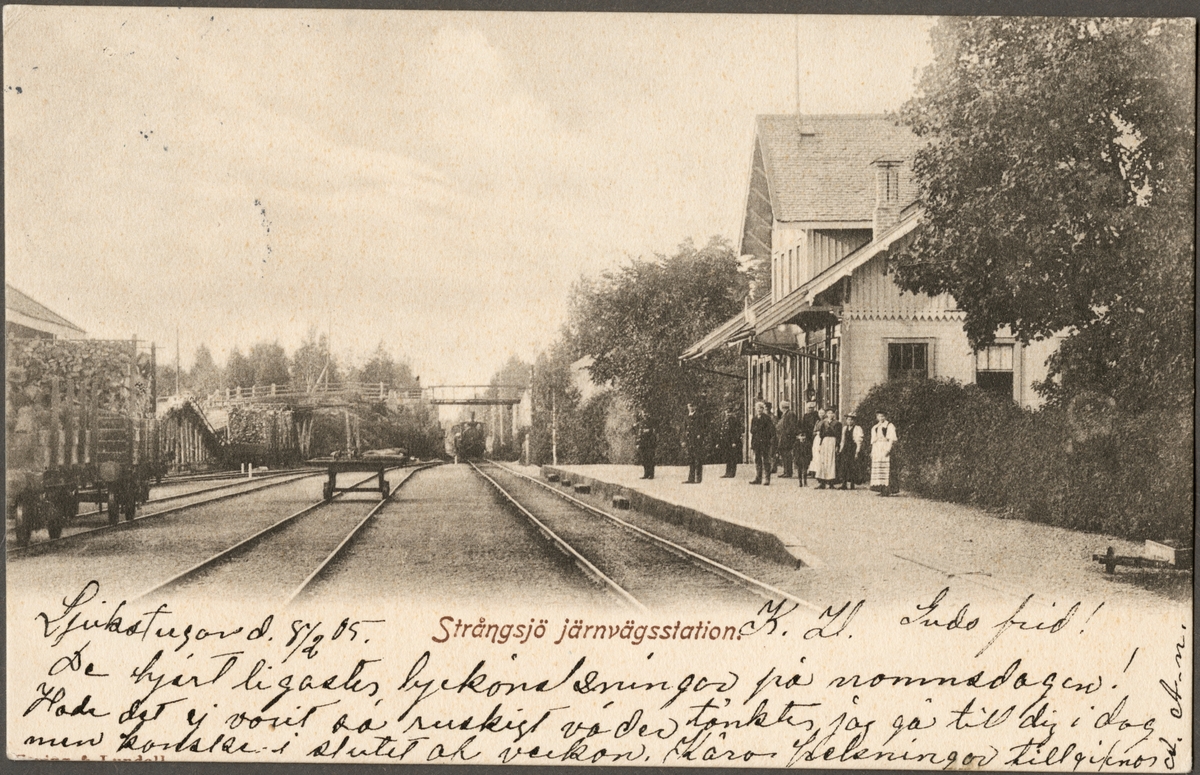 Sjukstugan d. 8/2 05.
Strångsjö järnvägsstation.
K. H. Guds frid!
De hjärtligaste lyckönskningar på namnsdagen!
Hade det ej varit så ruskigt väder, tänkte jag gå till dig i dag
men kanske i slutet af veckan. Kära helsningar tillgifnes
A. A-n.
& Lundell